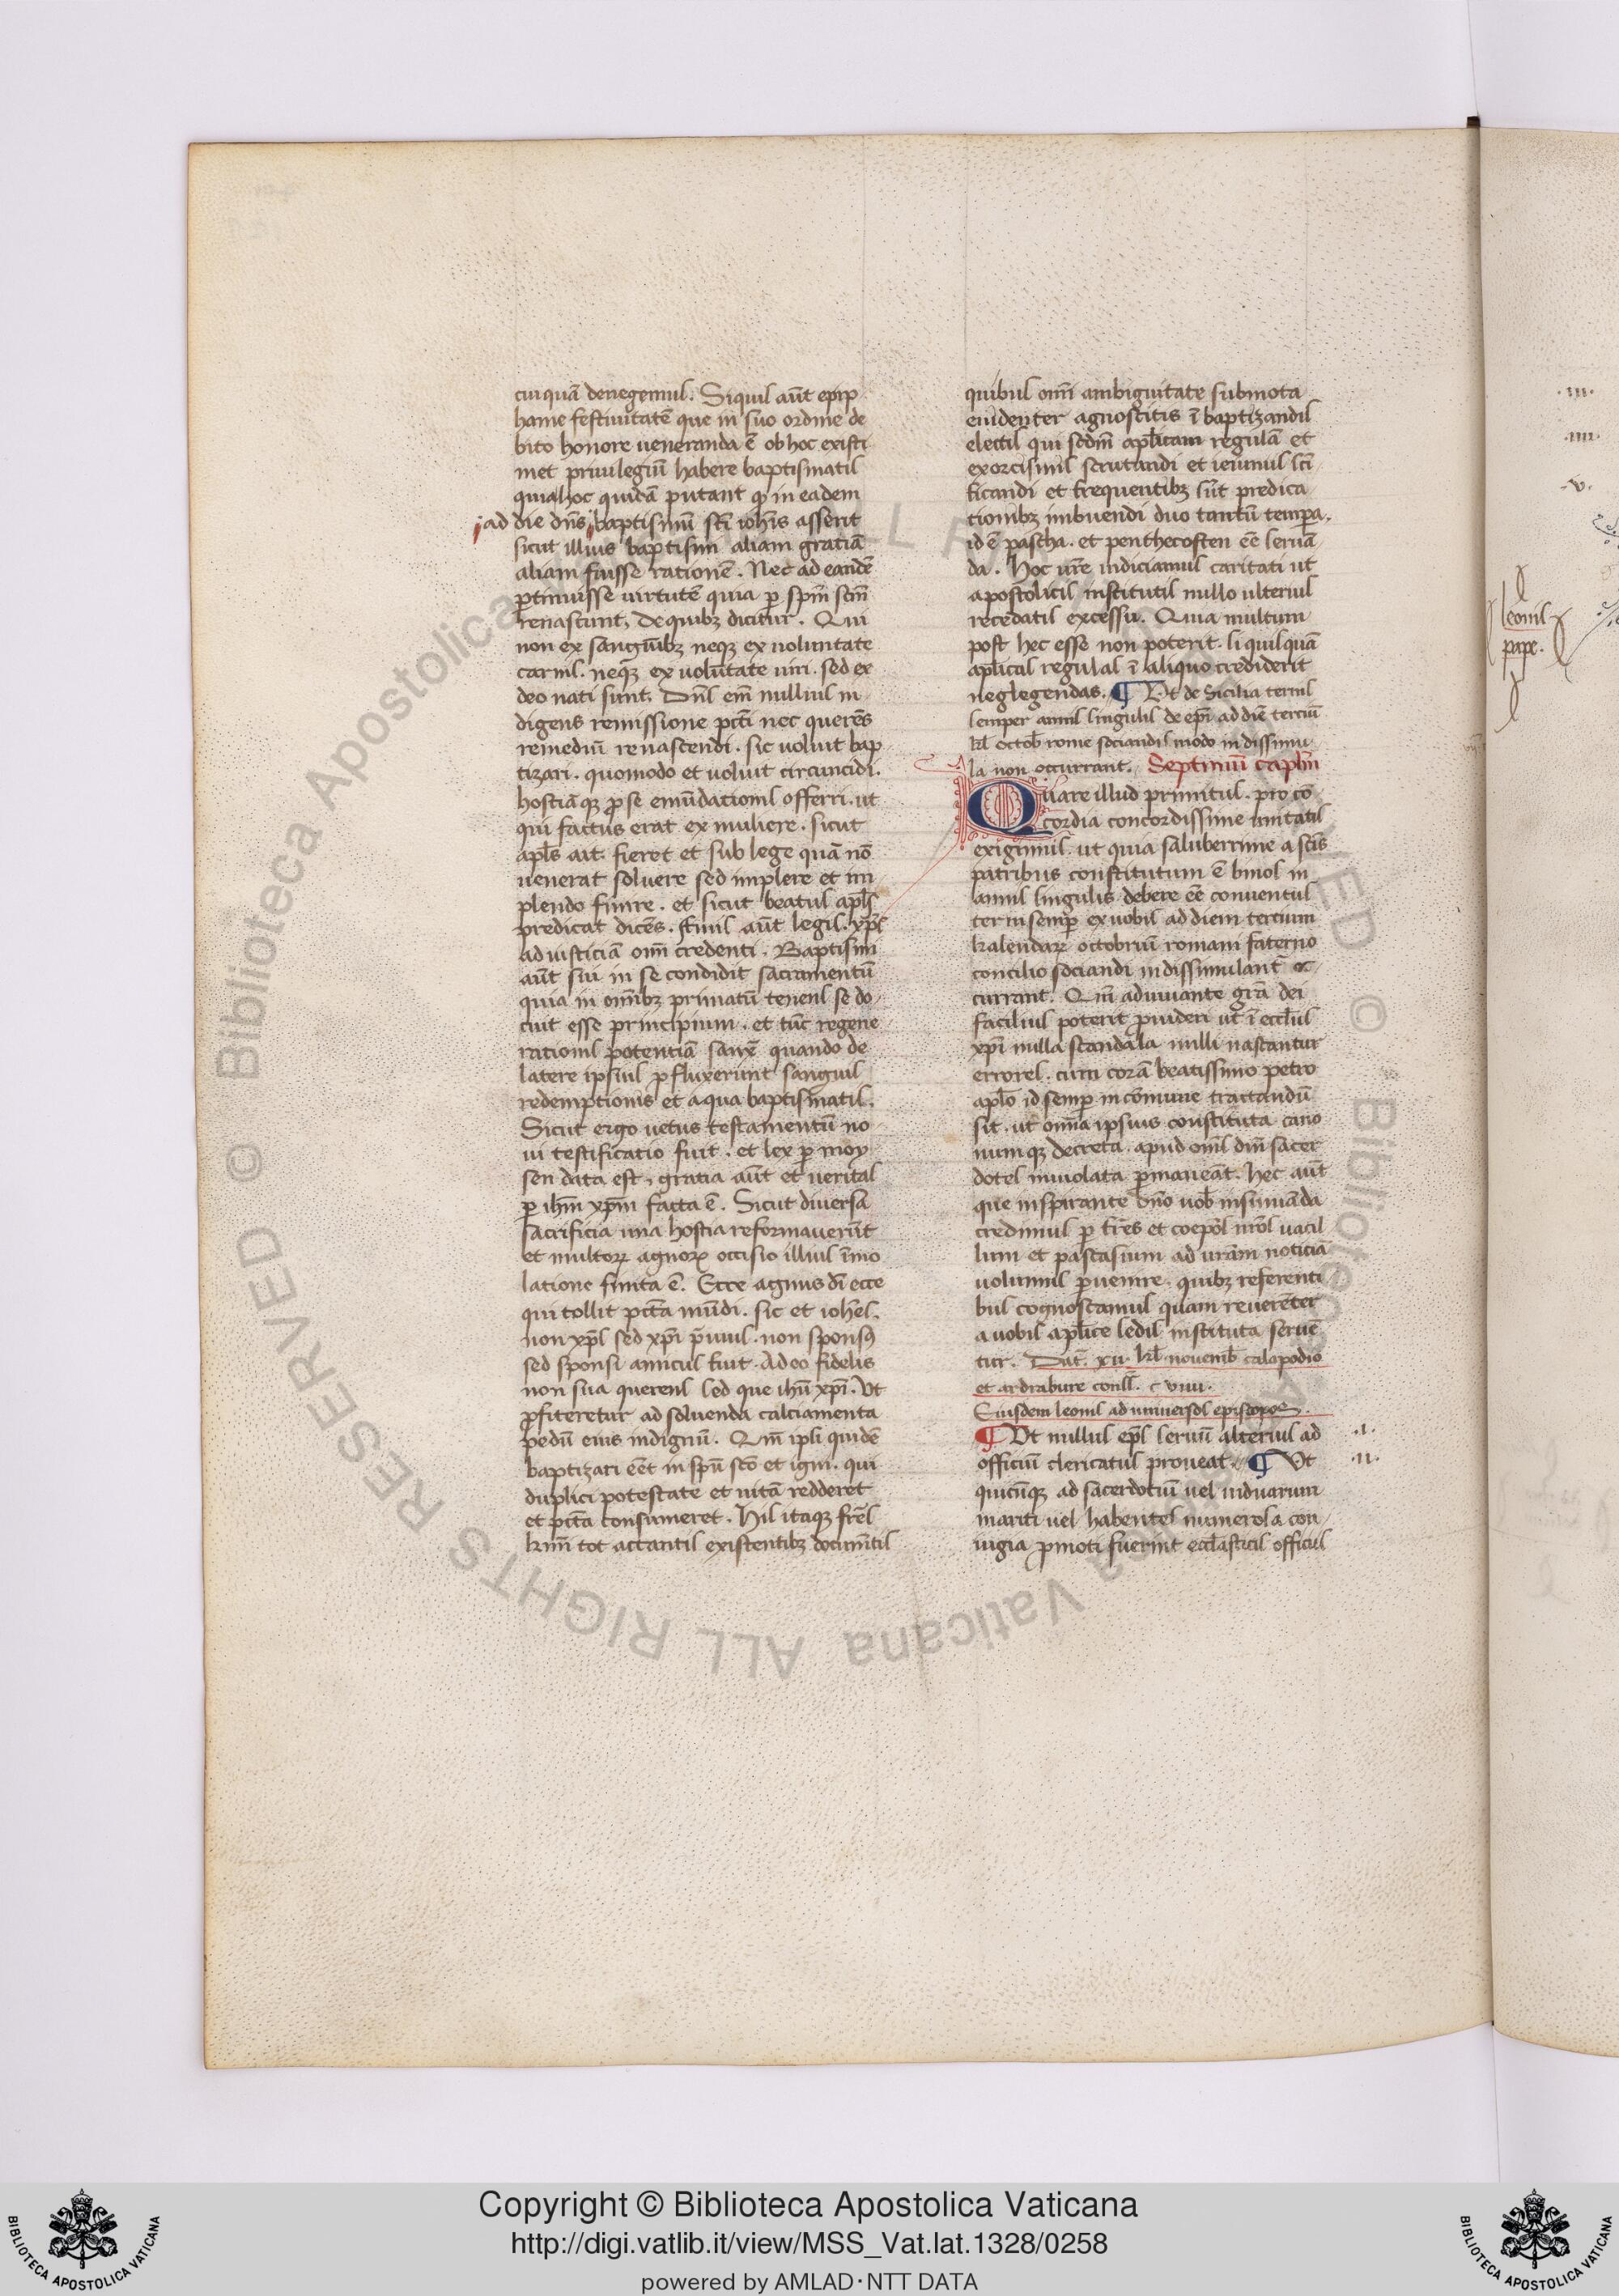 cuiquā denegemus. Siquis aūt epip
hanie festiuitatē que in suo ordine de
bito honore ueneranda ē ob hoc existi
met priuilegiū habere baptismatis
quia hoc quidā putant q in eadem
ad die dn̄s baptismū sc̄i ioh̄is asserit
sicut illius baptismi aliam gratiā
aliam fuisse rationē. Nec ad eandē
ꝑtinuisse uirtutē quia ꝑ sp̄m sc̄m
renascunt, de quibꝫ dicitur. Qui
non ex sanguībꝫ neqꝫ ex uoluntate
carnis. neqꝫ ex volūtate uiri. sed ex
deo nati sunt. Dn̄s em̄ nullius in
digens remissione pcc̄i nec querēs
remediū renascendi. sic uoluit bap
tizari. quomodo et uoluit circuncidi.
hostiāqꝫ ꝓ se emūdationis offerri. ut
qui factus erat ex muliere. sicut
apl̄s ait. fieret et sub lege quā nō
uenerat soluere sed implere et im
plendo finire. et sicut beatus apl̄s
predicat dicēs. finis aūt legis. xp̄s
ad iusticiā om̄i credenti. Baptismi
aūt sui in se condidit sacramentū
quia in om̄ibꝫ primatū tenens se do
cuit esse principium. et tūc regene
rationis potentiā sanxē quando de
latere ipsius ꝓfluxerunt sanguis
redemptionis et aqua baptismatis.
Sicut ergo uetus testamentū no
ui testificatio fuit. et lex ꝑ moy
sen data est, gratia aūt et ueritas
ꝑ ih̄m xp̄m facta ē. Sicut diuersa
sacrificia una hostia reformauerūt
et multoꝝ agnoꝝ occisio illius īmo
latione finita ē. Ecce agnus dī ecce
qui tollit pcc̄a mūdi. sic et ioh̄es.
non xp̄s sed xp̄i p̄uius. non sponsꝰ
sed sponsi amicus fuit. Adeo fidelis
non sua querens sed que ih̄u xp̄i. Vt
ꝓfiteretur ad soluenda calciamenta
pedū eius indignū. Qm̄ ipsi quidē
baptizari eēt in sp̄u sc̄o et igni. qui
duplici potestate et uitā redderet
et pcc̄a consumeret. His itaqꝫ fr̄es
km̄i tot ac tantis existentibꝫ documētis
quibus om̄i ambiguitate submota
euidenter agnoscitis ī baptizandis
electis qui scdm̄ apl̄icam regulā et
exorcismis scrutandi et ieiuniis sc̄i
ficandi et frequentibꝫ sūt predica
tionibꝫ imbuendi duo tantū tempa.
id ē pascha. et penthecosten eē seruā
da. Hoc ur̄e indiciamus caritati ut
apostolicis institutis nullo ulterius
recedatis excessu. Quia multum
post hec esse non poterit. si quisquā
apl̄icas regulas ī aliquo crediderit
neglegendas. ¶ Vt de Sicilia terni
semper annis singulis de ep̄i ad diē terciū
kl̄ octob̄ rome sociandi modo indissimu
la non occurrant. Septimū capl̄m
Quare illud primitus. pro cō
cordia concordissime unitatis
exigimus. ut quia saluberrime a sc̄is
patribus constitutum ē binos in
annis singulis debere eē conuentus
terni semꝑ ex uobis ad diem tercium
kalendaꝝ octobriū romam fr̄aterno
concilio sociandi indissimulant̄ oc
currant. Qm̄ adiuuante gr̄a dei
facilius poterit ꝓuideri ut ī eccl̄iis
xp̄i nulla scandala nulli nascantur
errores. cum corā beatissimo petro
apl̄o id semꝑ in cōmune tractandū
sit. ut om̄ia ipsius constituta cano
numqꝫ decreta. apud om̄s dn̄i sacer
dotes inuiolata ꝑmaneāt. hec aūt
que inspirante dn̄o uob̄ insinuāda
credimus ꝑ fr̄es et coep̄os nr̄os uacil
lum et pascasium ad uram noticiā
uolumus ꝑuenire. quibꝫ referenti
bus cognoscamus quam reuerēter
a uobis apl̄ice sedis instituta serue
tur. Dat̄. xii. kl̄. nouemb̄ calapodio
et ardrabure conss̄. c viiii.
Eiusdem leonis ad uniuersos episcopos.
¶ Vt nullus ep̄s seruū alterius ad .i.
officiū clericatus ꝓmoueat. ¶ Vt .ii.
quicūqꝫ ad sacerdotiū uel uiduarum
mariti uel habentes numerosa con
iugia ꝓmoti fuerint eccl̄asticis officiis
.iii.
.iiii.
.v.
leonis
pape.
© Biblioteca Apostolica Vaticana ALL RIGHTS RESERVED
Copyright © Biblioteca Apostolica Vaticana
http://digi.vatlib.it/view/MSS_Vat.lat.1328/0258
powered by AMLAD·NTT DATA
BIBLIOTECA APOSTOLICA VATICANA
BIBLIOTECA APOSTOLICA VATICANA